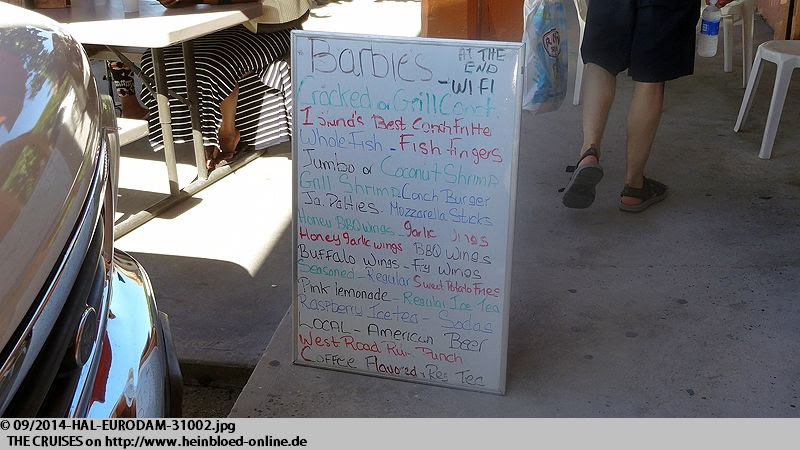 Barbie's AT THE END
- WIFI
Cracked or Grill Conch.
Island's Best Conch Fritter
Whole Fish - Fish fingers
Jumbo or Coconut Shrimp
Grill Shrimp - Conch Burger
Ja. Patties - Mozzarella Sticks
Honey BBQ wings - garlic wings
Honey garlic wings BBQ Wings
Buffalo Wings - Fry Wings
Seasoned - Regular Sweet Potato Fries
Pink lemonade - Regular Ice Tea
Raspberry Ice tea - Sodas
LOCAL - American Beer
West Road Rum Punch
Coffee Flavored & Reg Tea
© 09/2014-HAL-EURODAM-31002.jpg
THE CRUISES on http://www.heinbloed-online.de